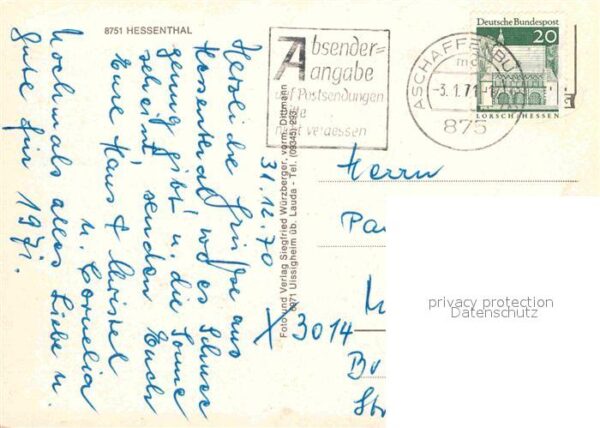 8751 HESSENTHAL
31.12.70
Herzliche Grüße aus
Hessental, wo es Schnee
genug gibt u. die Sonne
scheint, senden Euch
Eure Hans &
u. Cornelia
Nochmals alles Liebe u.
Gute für 1971.
Foto und Verlag Siegfried Würzberger, vorm. Dittmann
6971 Uissigheim üb. Lauda - Tel. (09345) 293
Absender=
angabe
auf Postsendungen
bitte
nicht vergessen
ASCHAFFENBURG
mc
-3.1.71-
875
Deutsche Bundespost
20
LORSCH/HESSEN
Herrn
Pa
X 3014
Str
privacy protection
Datenschutz